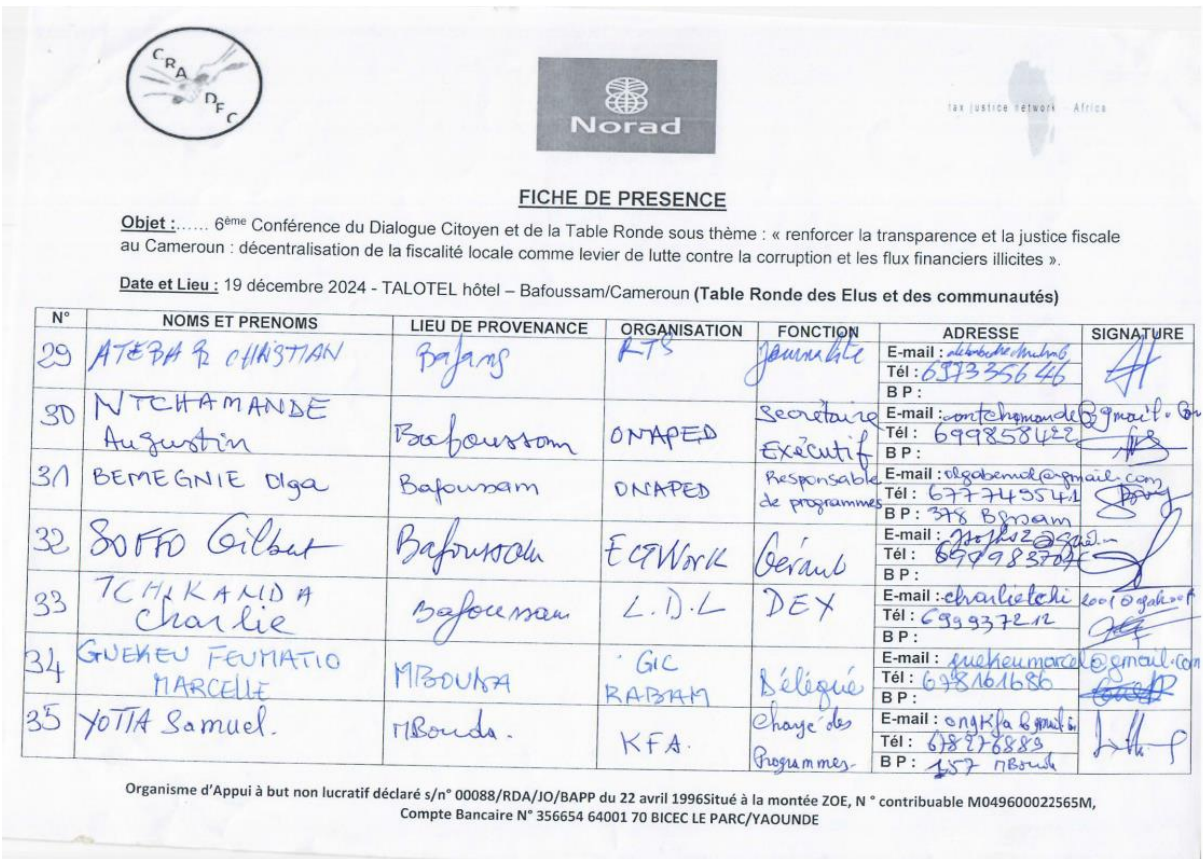 CRADEC
Norad
tax justice network - Africa
FICHE DE PRESENCE
Objet :...... 6ème Conférence du Dialogue Citoyen et de la Table Ronde sous thème : « renforcer la transparence et la justice fiscale
au Cameroun : décentralisation de la fiscalité locale comme levier de lutte contre la corruption et les flux financiers illicites ».
Date et Lieu : 19 décembre 2024 - TALOTEL hôtel – Bafoussam/Cameroun (Table Ronde des Elus et des communautés)
N° NOMS ET PRENOMS LIEU DE PROVENANCE ORGANISATION FONCTION ADRESSE SIGNATURE
29 ATEBA CHRISTIAN Bafang RTS Journaliste E-mail :
Tél : 697335646
B P :
30 NTCHAMANDE Augustin Bafoussam ONAPED Secrétaire Exécutif E-mail : @gmail.com
Tél : 699858422
B P :
31 BEMEGNIE Olga Bafoussam ONAPED Responsable de programmes E-mail :
Tél : 677749541
B P : 378
32 SOFFO Gilbert Bafoussam Gérant E-mail :
Tél :
B P :
33 TCHIKANDA Charlie Bafoussam L.D.L DEX E-mail :
Tél : 699937212
B P :
34 GUEKEU FEUMATIO MARCELLE MBOUDA GIC RABAM Délégué E-mail : guekeumarcel@gmail.com
Tél : 678161686
B P :
35 YOTTA Samuel. MBouda. KFA. chargé des Programmes. E-mail :
Tél : 678276889
B P : 157 MBouda
Organisme d'Appui à but non lucratif déclaré s/n° 00088/RDA/JO/BAPP du 22 avril 1996Situé à la montée ZOE, N ° contribuable M049600022565M,
Compte Bancaire N° 356654 64001 70 BICEC LE PARC/YAOUNDE